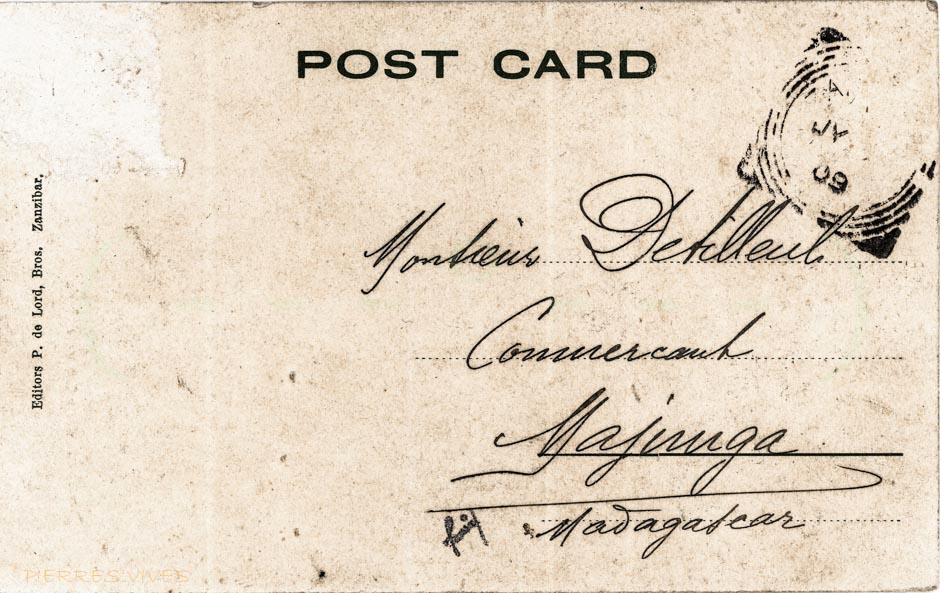 POST CARD
Editors P. de Lord, Bros, Zanzibar,
JY
09
Monsieur Detilleul
Commercant
Majunga
Madagascar
PIERRES VIVES